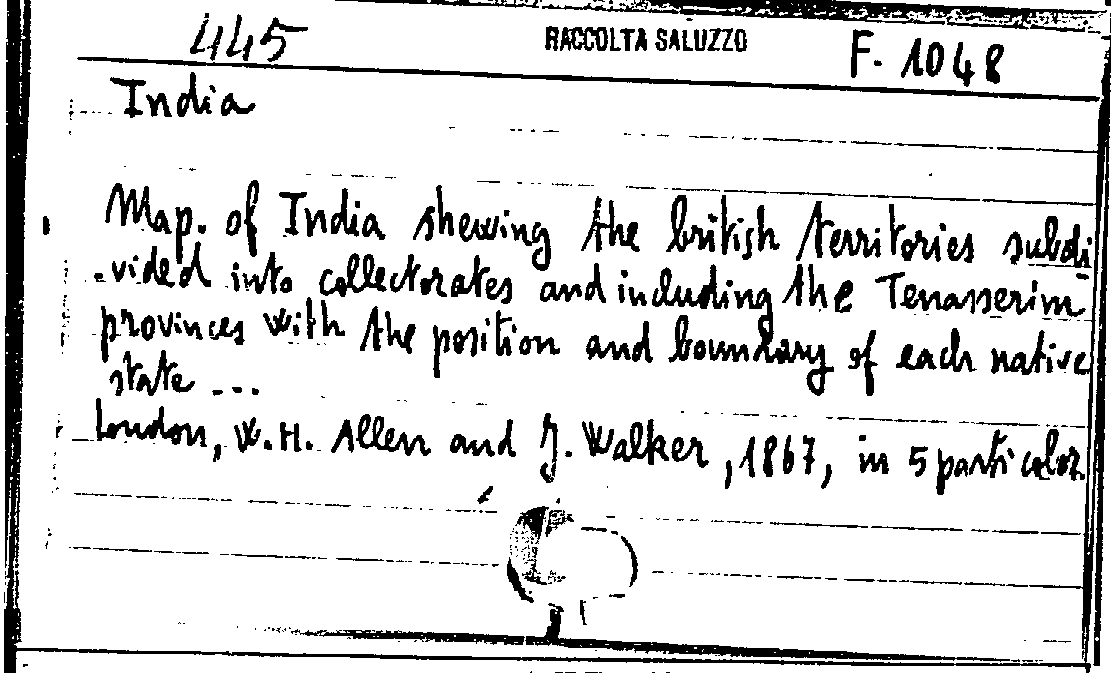 445 RACCOLTA SALUZZO F. 1048
India
Map. of India shewing the british territories subdi
-vided into collectorates and including the Tenasserim
provinces with the position and boundary of each native
state ...
London, W. H. Allen and J. Walker, 1867, in 5 parti color.